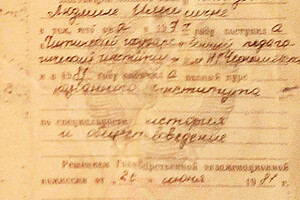 Людмиле
в том, что он а в 197 году поступил а
в Читинский государственный педаго-
гический институт им. Н. Г. Чернышевского
и в 1981 году окончил а полный курс
названного института
по специальности история
и обществоведение
Решением Государственной экзаменационной
комиссии от „26" июня 1981 г.